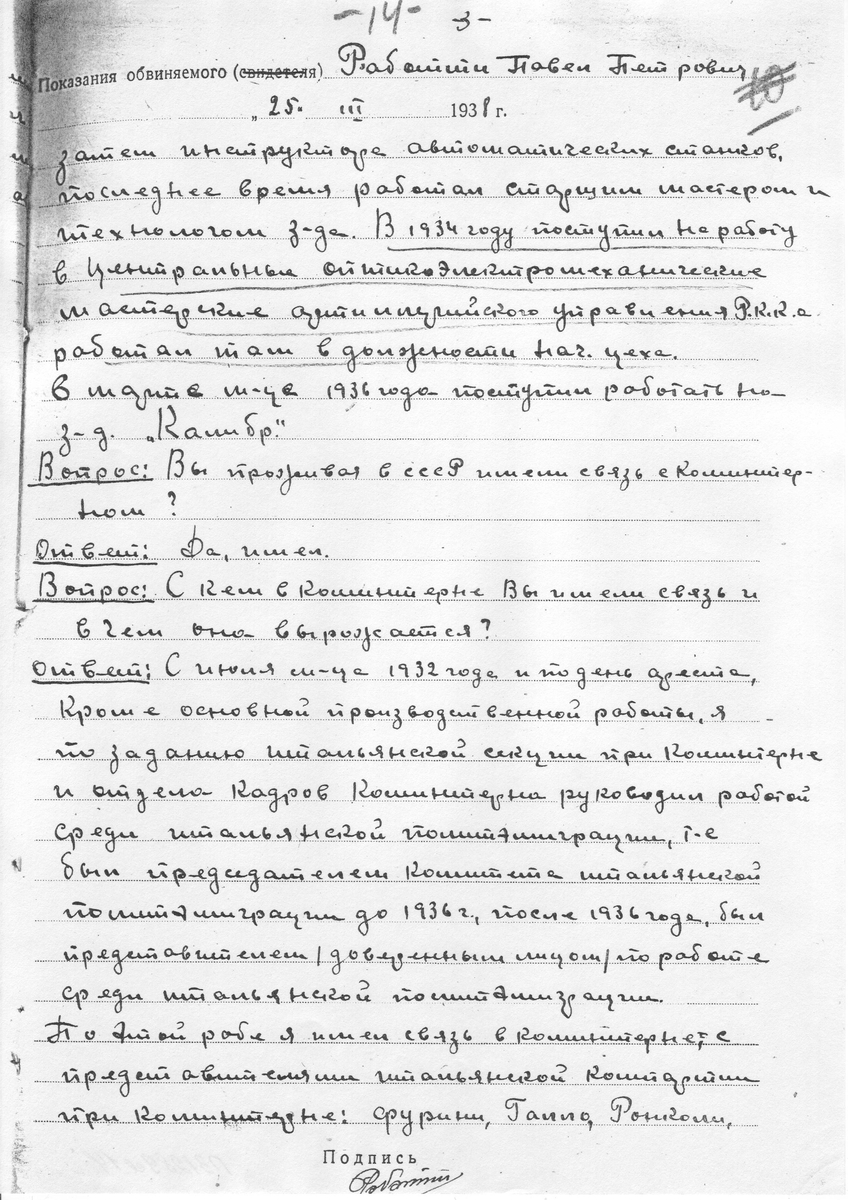 -14- -3-
Показания обвиняемого (свидетеля) Работти Павел Петрович
10
„25" III 1938 г.
затем инструктора автоматических станков,
последнее время работал старшим мастером и
технологом з-да. В 1934 году поступил на работу
в Центральные оптикоэлектромеханические
мастерские артиллерийского управления Р.К.К.А.
работал там в должности нач. цеха.
В марте м-це 1936 года поступил работать на
з-д. „Калибр."
Вопрос: Вы проживая в СССР имели связь с Коминтер-
ном?
Ответ: Да, имел.
Вопрос: С кем в Коминтерне Вы имели связь и
в чем она выражается?
Ответ: С июля м-ца 1932 года и по день ареста,
Кроме основной производственной работы, я
по заданию итальянской секции при Коминтерне
и отдела Кадров Коминтерна руководил работой
среди итальянской политэмиграции, т-е
был председателем Комитета итальянской
политэмиграции до 1936 г., после 1936 года, был
представителем /доверенным лицом/ по работе
среди итальянской политэмиграции.
По этой рабе я имел связь в Коминтерне, с
представителями итальянской компартии
при Коминтерне: Фурини, Галло, Ронколи,
Подпись
Работти